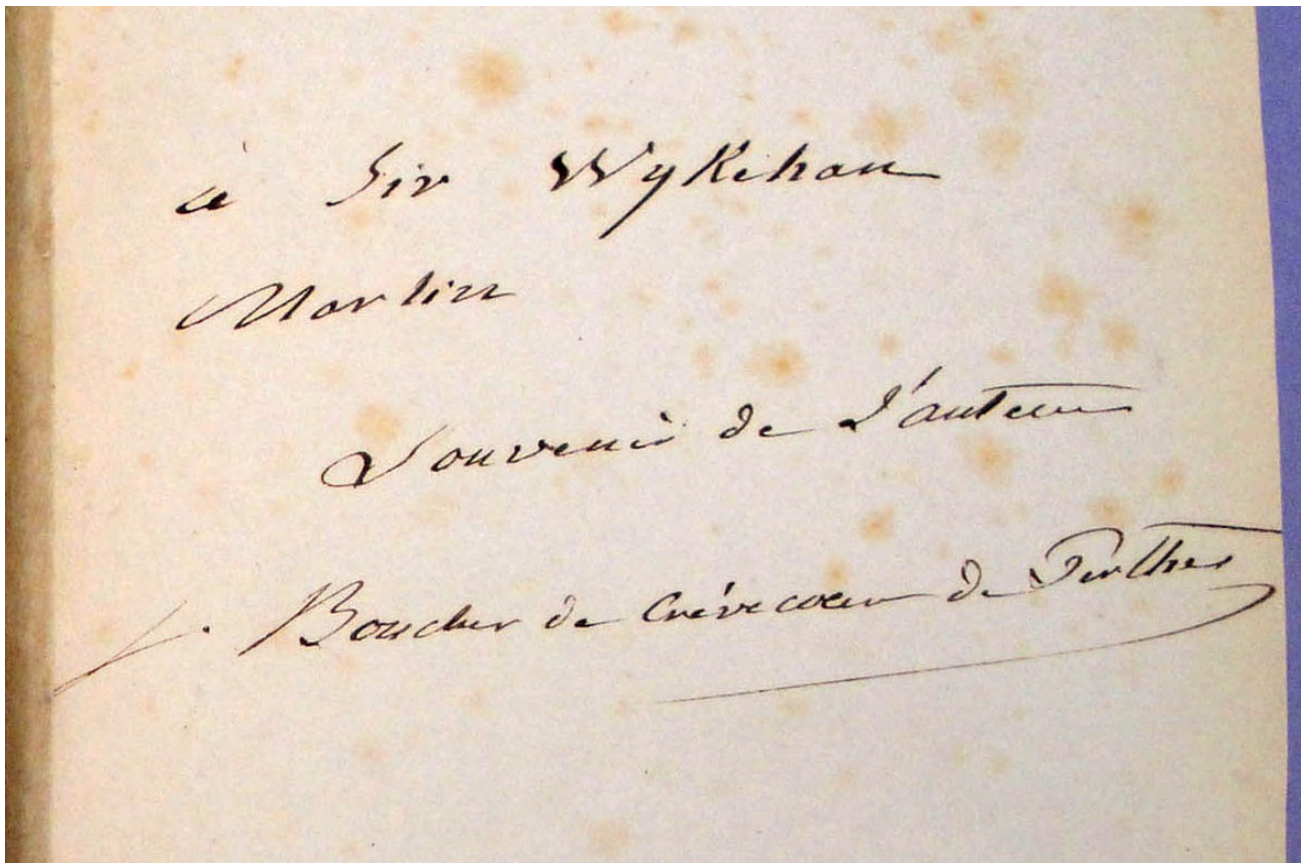 à Sir Wykeham
Martin
Souvenir de l'auteur
J. Boucher de Crèvecoeur de Perthes